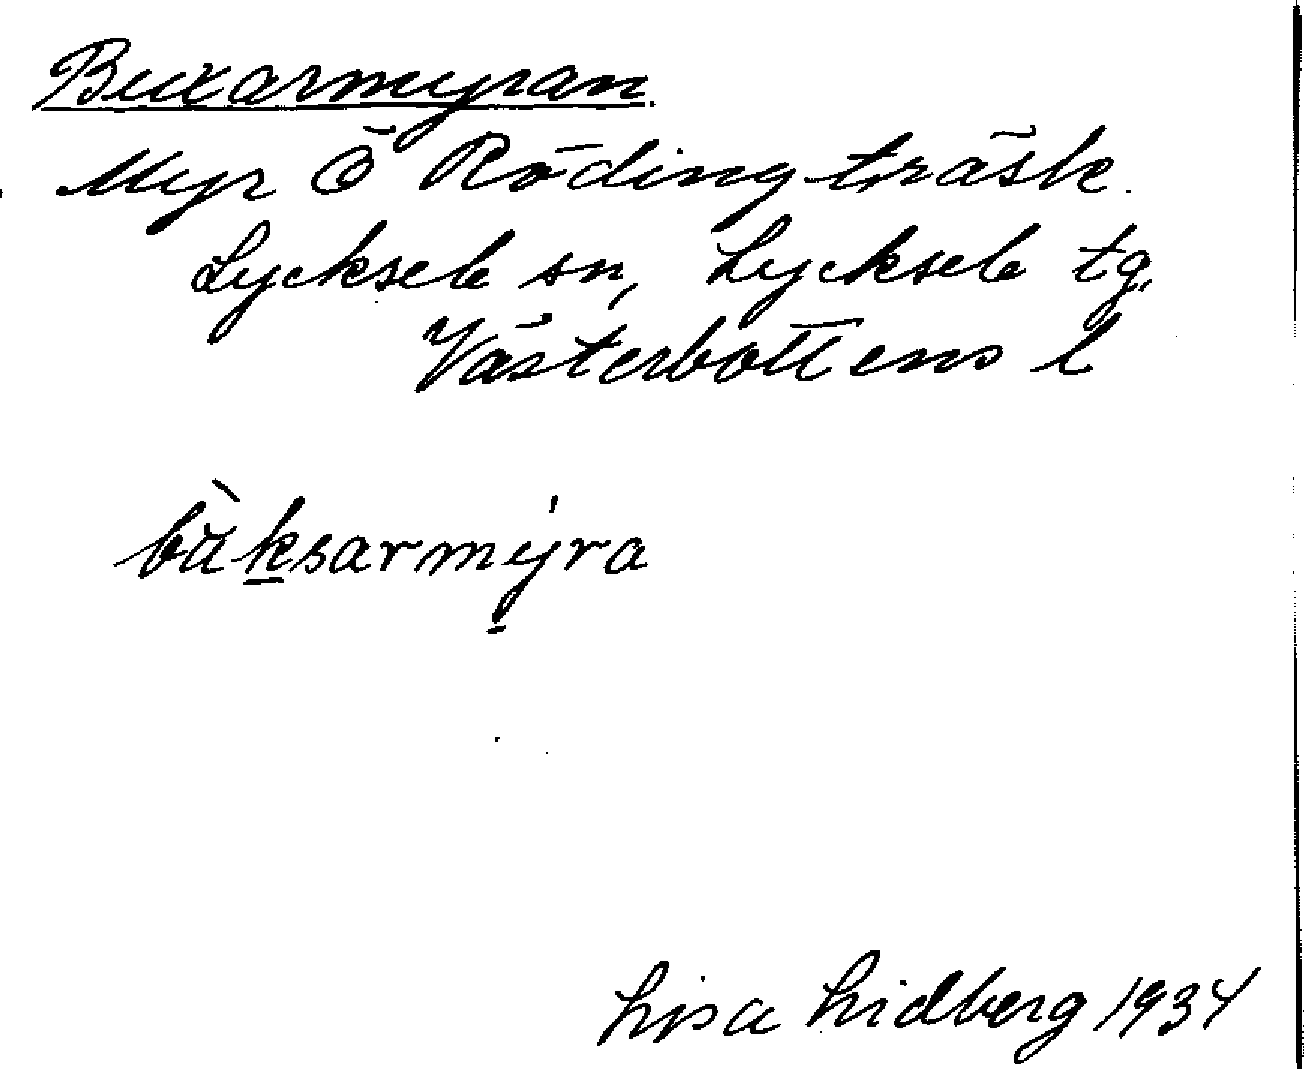 Buxarmyran
Myr Ö Rödingträsk.
Lycksele sn, Lycksele tg.
Västerbottens l
bùksarmýra
Lisa Lidberg 1934